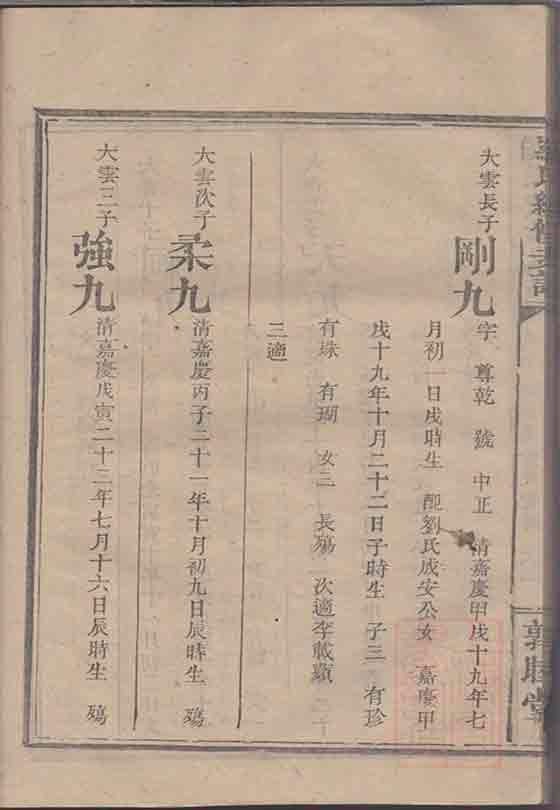 氏續修支譜
敦睦堂
大雲長子
剛九
字 尊乾 號 中正 清嘉慶甲戌十九年七
月初一日戌時生 配劉氏成安公女 嘉慶甲
戌十九年十月二十二日子時生 子三 有珍
有珠 有瑚 女三 長殤 次適李載
三適
大雲次子
柔九
清嘉慶丙子二十一年十月初九日辰時生 殤
大雲三子
強九
清嘉慶戊寅二十三年七月十六日辰時生 殤